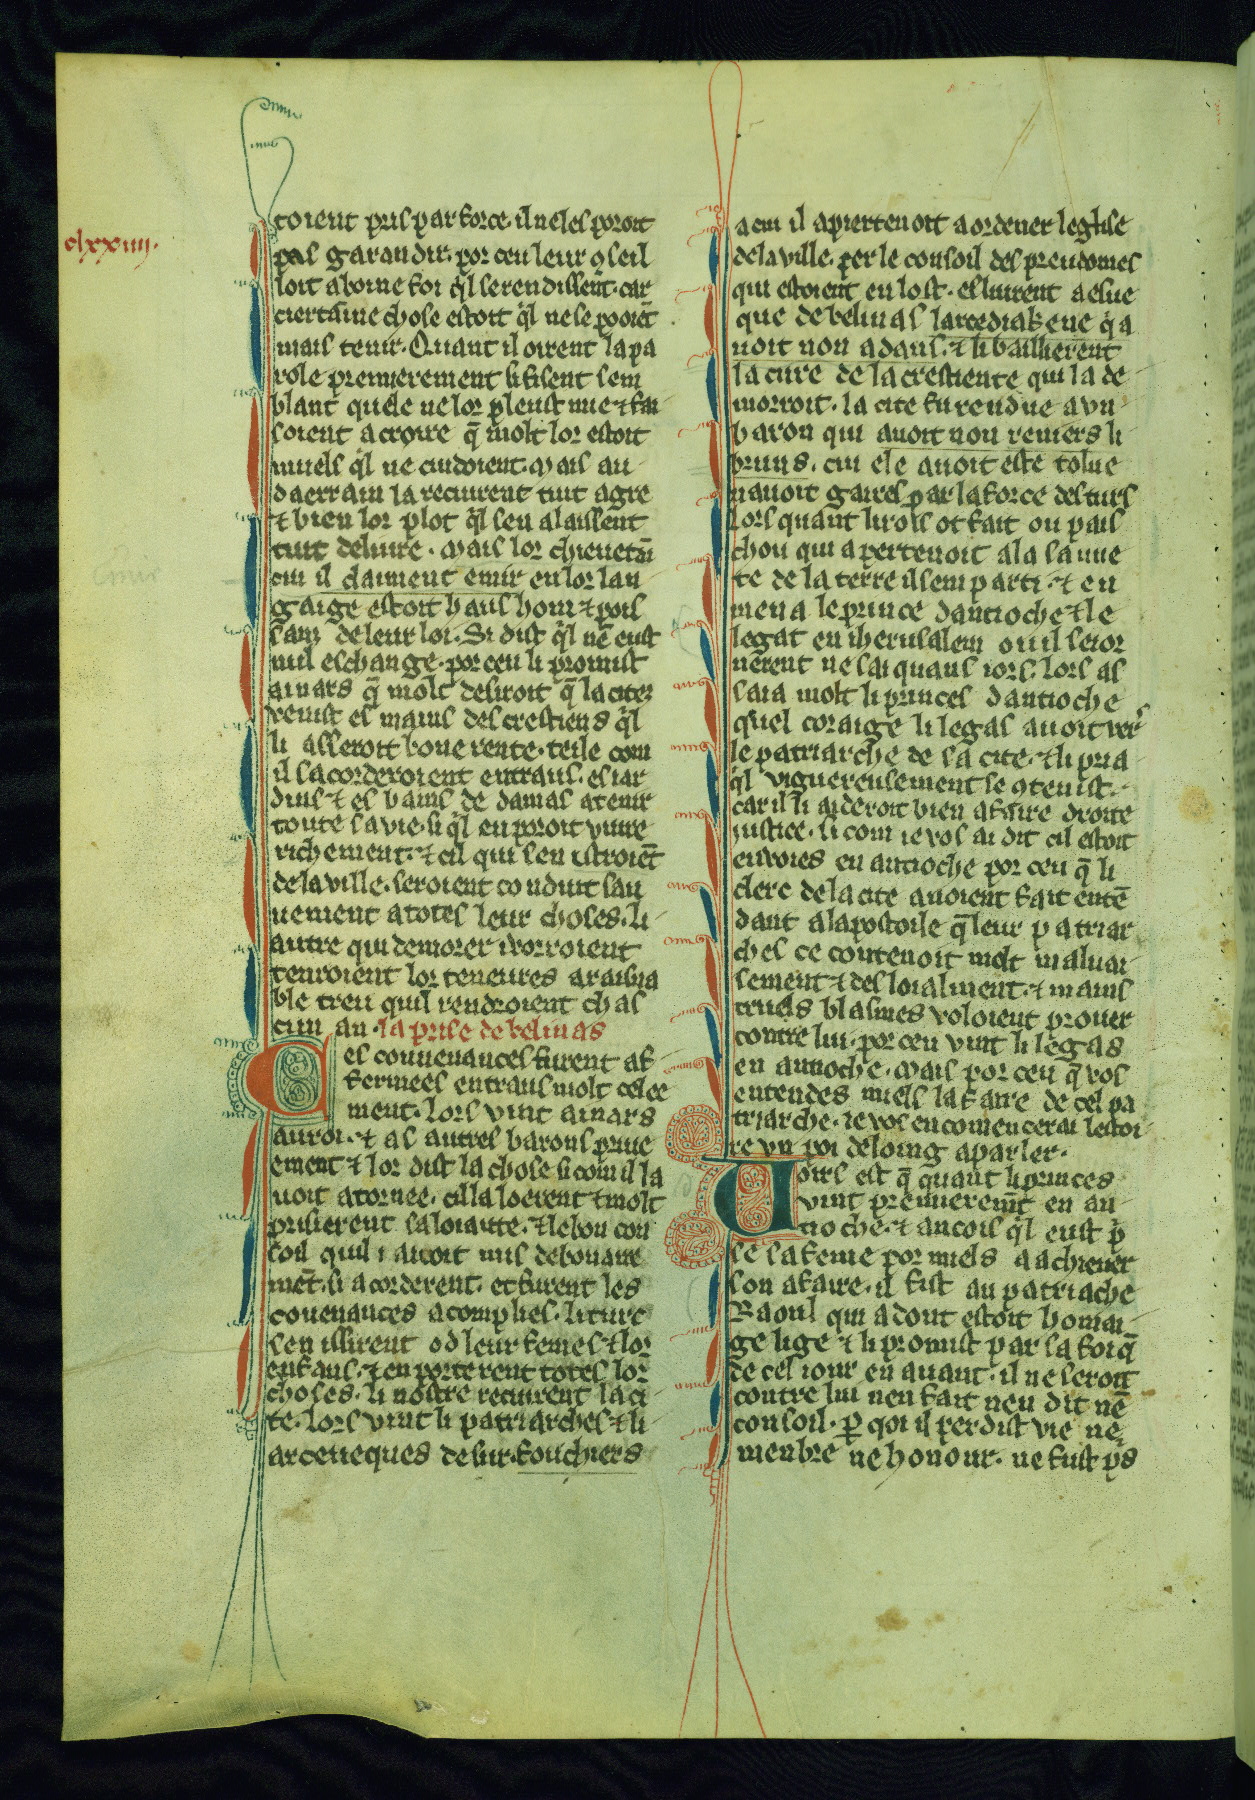 clxxiiij.
toient pris par force. il ne les poroit
pas garandir. por ceu leur ꝯseil
loit a bone foi q̉l se rendissent. car
ciertaine chose estoit q̉l ne se pooiēt
mais tenir. Quant il oirent la pa
role premierement si fisent sem
blant quele ne lor pleust mie ⁊ fai
soient a croire q̄ molt lor estoit
muels q̉l ne cuidoient. Mais au
daerrain la reciurent tuit agre
⁊ bien lor plot q̉l sen alaissent
tuit deliure. Mais lor chieuetaī
cui il claiment emir en lor lan
gaige estoit haus hom ⁊ pois
sans de leur loi. Si dist q̉l nē eust
nul eschange. por ceu li promist
ainars q̄ molt desiroit q̄ la citez
venist es mains des crestiens q̉l
li asseroit bone rente. teile com
il sacorderoient entraus. es iar
dins ⁊ es bains de damas a tenir
toute sa vie. si q̉l en poroit viure
richement. ⁊ cil qui sen istroiēt
de la ville. seroient conduit sau
uement a totes leur choses. li
autre qui demorer i vorroient
tenroient lor teneures a raisna
ble treu quil rendroient chas
cun an. la prise de belinas
Ces conuenances furent af
fermees entraus molt celee
ment. Lors vint ainars
au roi. ⁊ as autres barons priue
ement ⁊ lor dist la chose si com il la
uoit atornee. cil la loerent ⁊ molt
prisierent sa loiaute. ⁊ le bon con
soil quil i auoit mis debonaire
mēt. si acorderent. et furent les
couenances acomplies. li turc
sen issirent od leur femes ⁊ lor
enfans. ⁊ en porterent totes lor
choses. li nostre reciurent la ci
te. Lors vint li patriarches ⁊ li
arceueques de sur. fouchiers
a cui il apiertenoit a ordener leglise
de la ville. per le consoil des preudomes
qui estoient en lost. eslurent a esue
que de belinas larcediakene q̉ a
uoit non adans. ⁊ li baillierent
la cure de la crestiente qui la de
morroit. la cite fu rendue a vn
baron qui auoit non reniers li
bruns. cui ele auoit este tolue
nauoit gaires par la force des turs
Lors quant li rois ot fait ou pais
chou qui apertenoit a la sauue
te de la terre il sem parti. ⁊ en
mena le prince dantioche ⁊ le
legat en iherusalem ou il seior
nerent ne sai quans iors. Lors as
saia molt li princes dantioche
quel coraige li legas auoit vers
le patriarche de sa cite. ⁊ li pria
q̉l viguereusement se ꝯtenist.
car il li aideroit bien a faire droite
iustice. si com ie vos ai dit cil estoit
enuoies en antioche por ceu q̄ li
clerc de la cite auoient fait entē
dant a lapostoile q̄ leur patriar
ches ce contenoit molt maluai
sement ⁊ desloialment. ⁊ mains
cruels blasmes voloient prouer
contre lui. por ceu vint li legas
en antioche. Mais por ceu q̄ vos
entendes muels lafaire de cel pa
triarche. ie vos encomencerai lestoi
re vn poi de loing a parler.
Voirs est q̄ quant li princes
vint premieremt en an
tioche. ⁊ ancois q̉l eust p̉
se sa feme por miels a achieuer
son afaire. il fist au patriache
Raoul qui adont estoit homai
ge lige ⁊ li promist par sa foi q̄
de cel iour en auant. il ne seroit
contre lui nen fait nen dit nē
consoil. ꝑ qoi il perdist vie ne
menbre ne honour. ne fust p̉s